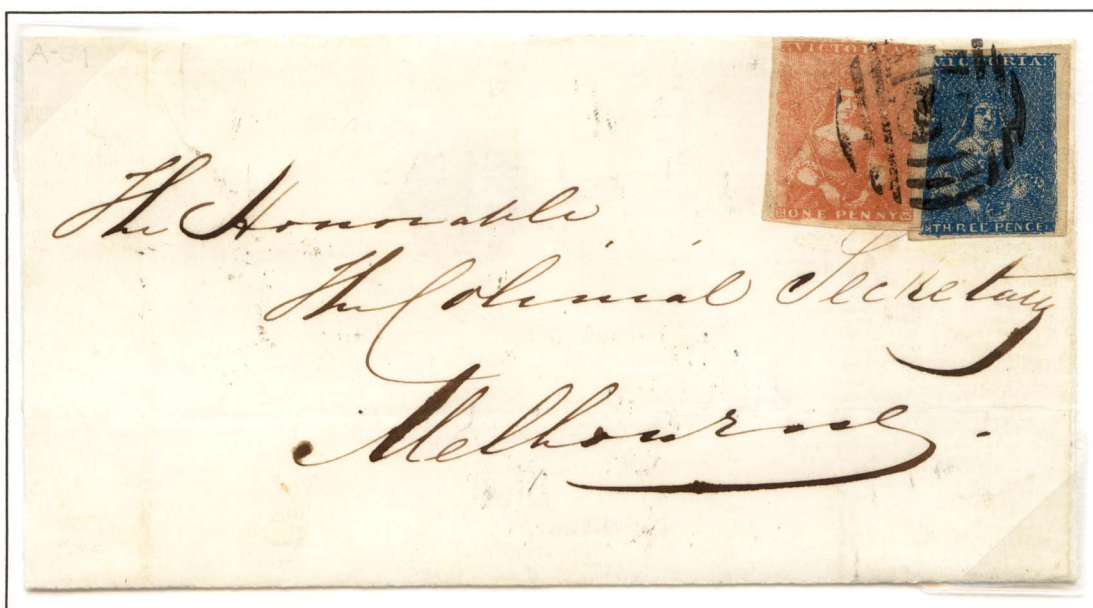 A-34
VICTORIA
ONE PENNY
VICTORIA
THREE PENCE
The Honorable
The Colonial Secretary
Melbourne.